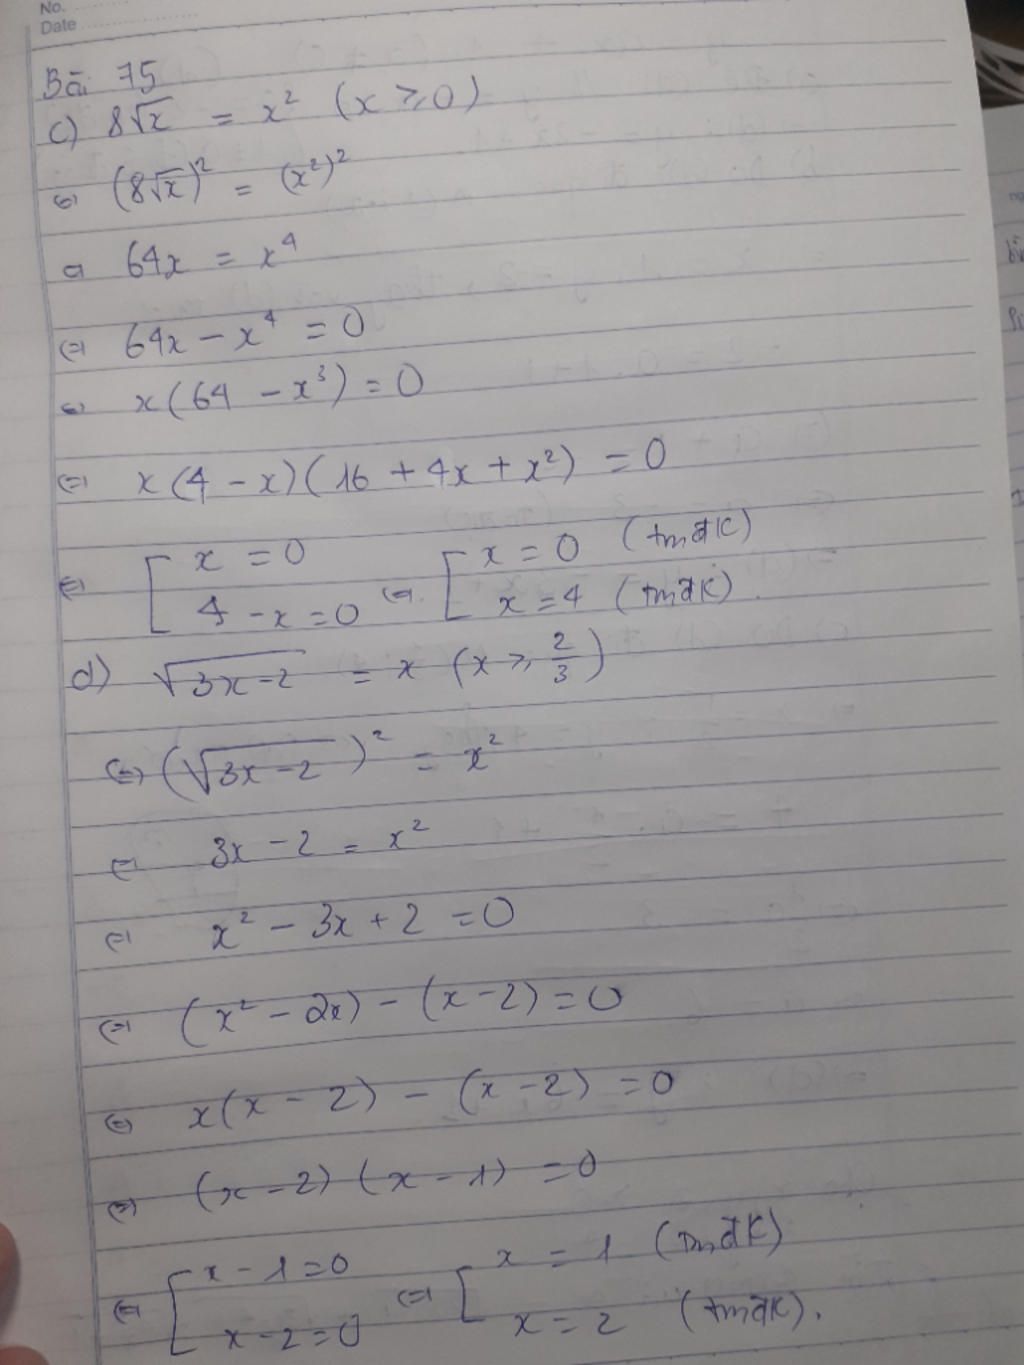 No.
Date
Bài 75
c) 8√x = x² (x ⩾ 0)
⇔ (8√x)² = (x²)²
⇔ 64x = x⁴
⇔ 64x - x⁴ = 0
⇔ x(64 - x³) = 0
⇔ x(4 - x)(16 + 4x + x²) = 0
⇔ [ x = 0 ⇔ [ x = 0 (tmđK)
4 - x = 0 x = 4 (tmđK).
d) √(3x-2) = x (x ⩾ 2/3)
⇔ (√(3x-2))² = x²
⇔ 3x - 2 = x²
⇔ x² - 3x + 2 = 0
⇔ (x² - 2x) - (x - 2) = 0
⇔ x(x - 2) - (x - 2) = 0
⇔ (x - 2)(x - 1) = 0
⇔ [ x - 1 = 0 ⇔ [ x = 1 (tmđK)
x - 2 = 0 x = 2 (tmđK).